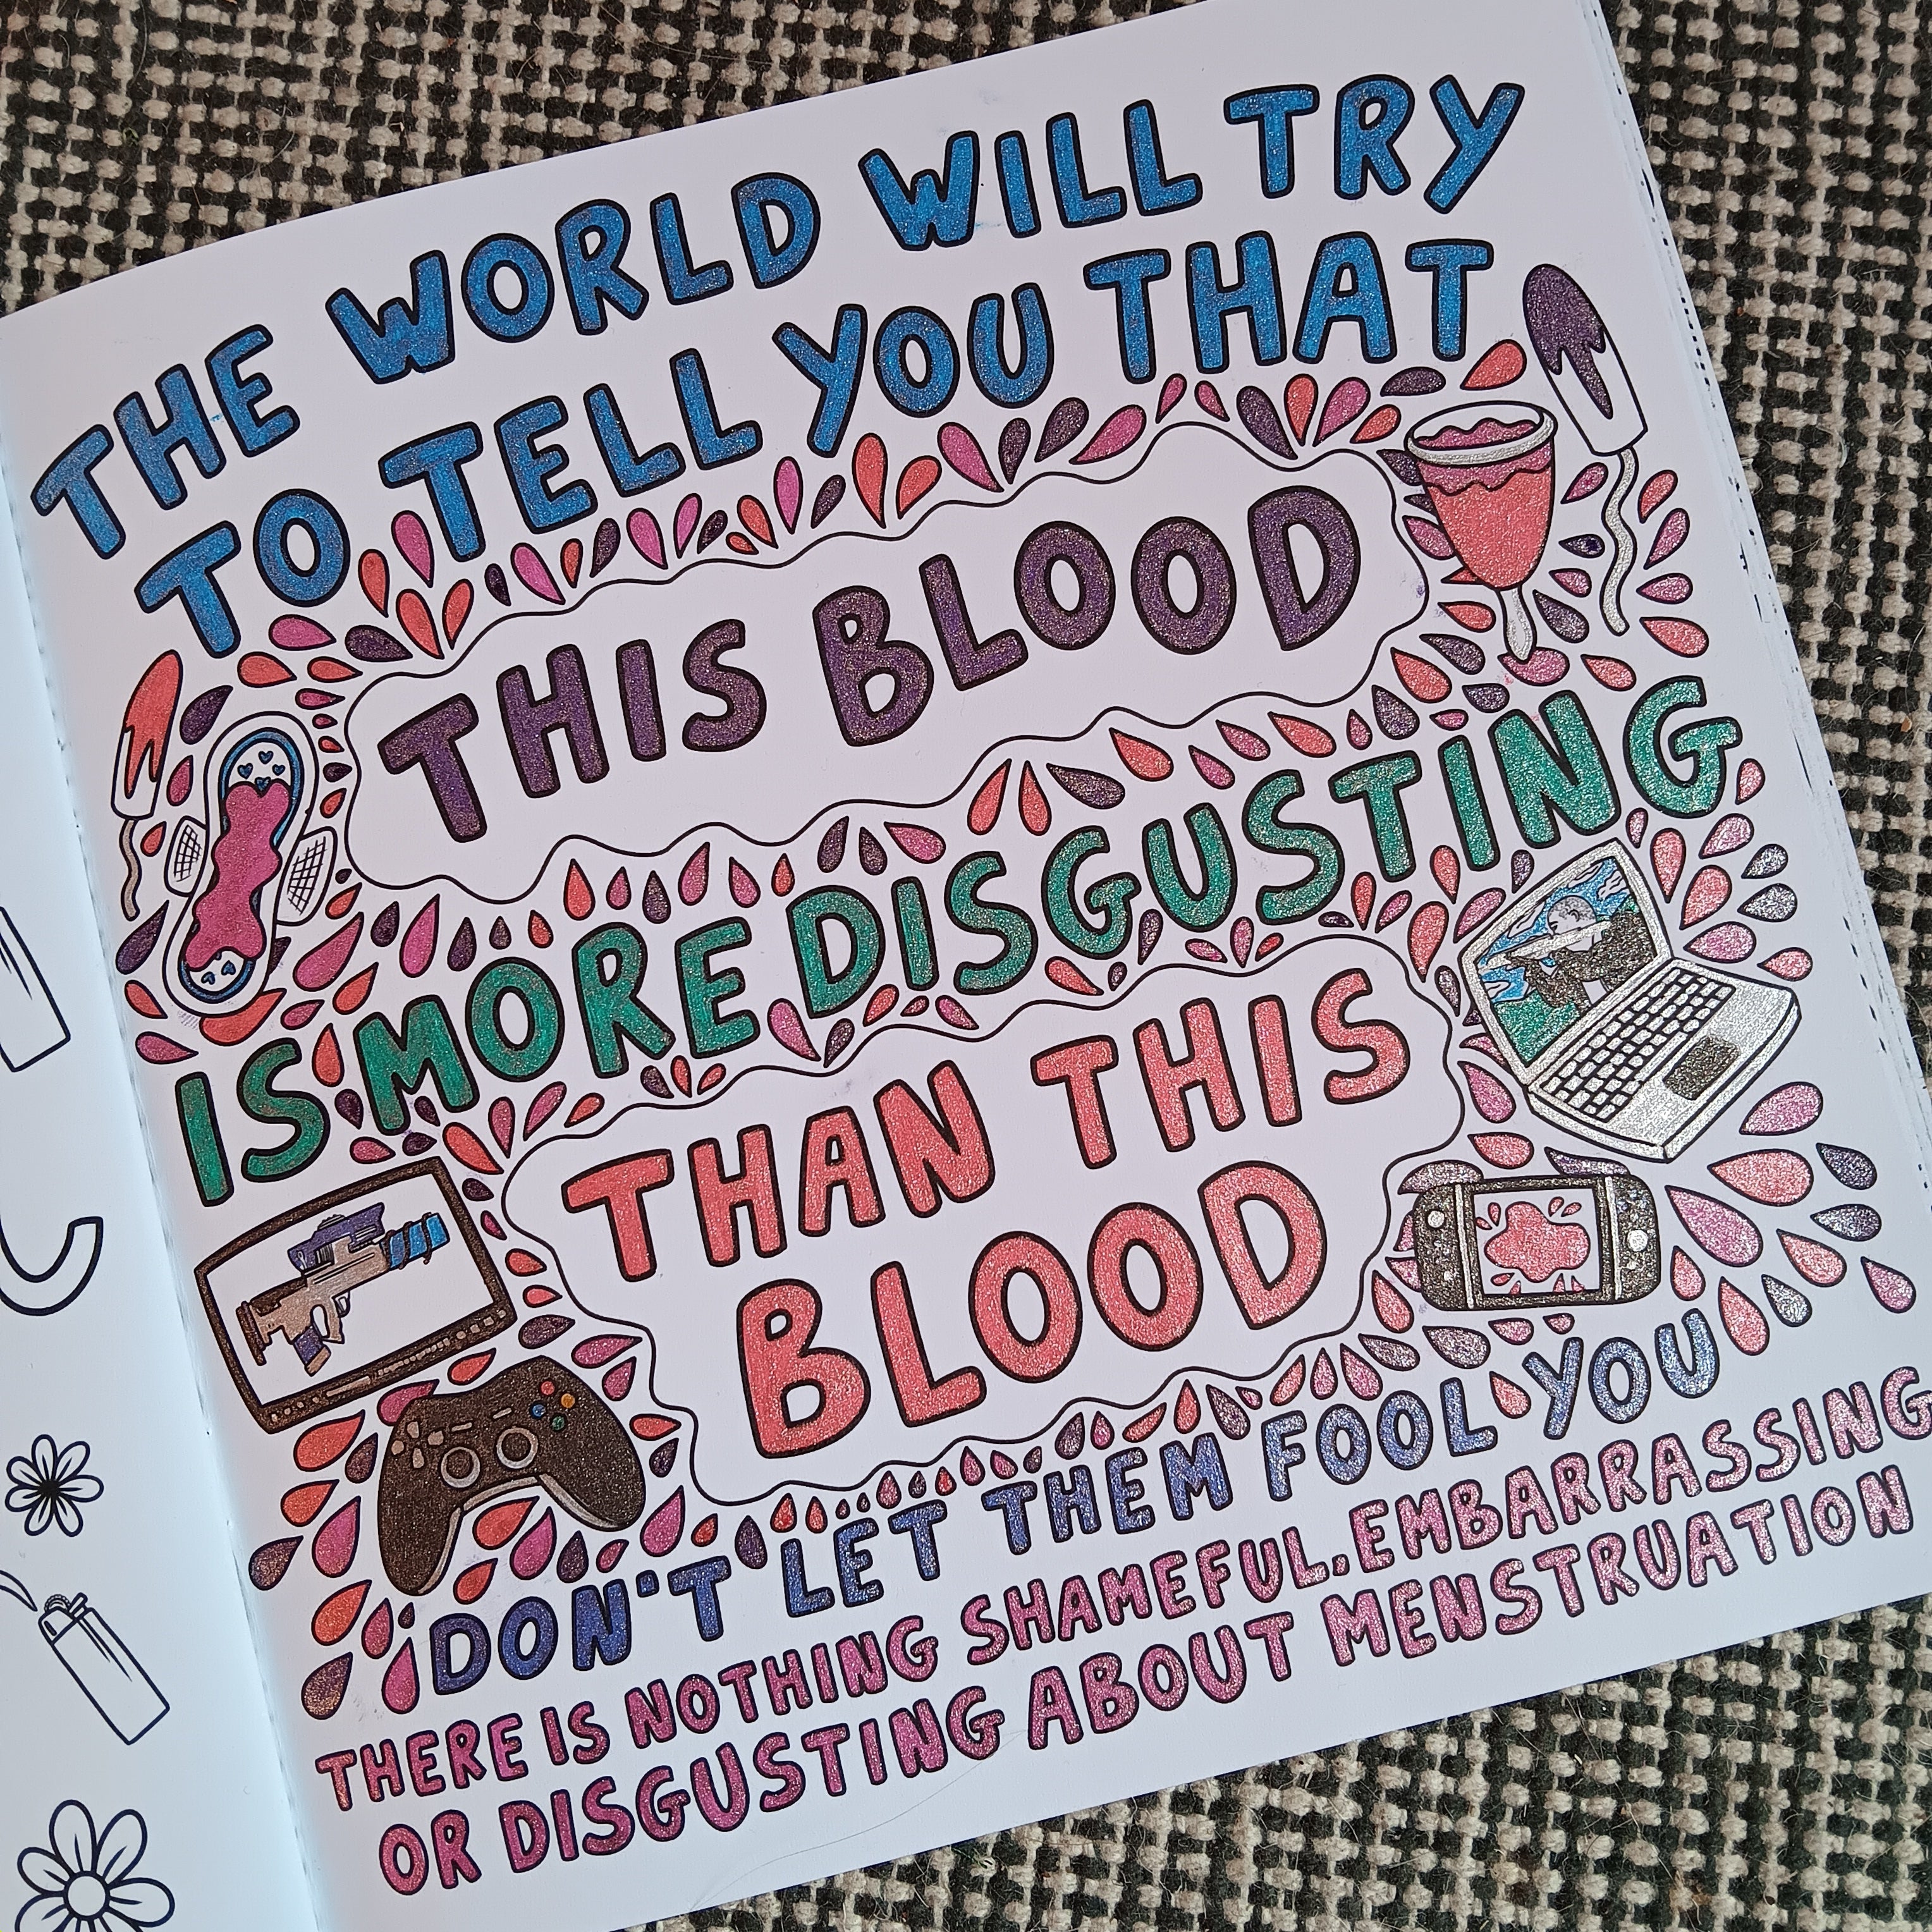 THE WORLD WILL TRY
TO TELL YOU THAT
THIS BLOOD
IS MORE DISGUSTING
THAN THIS
BLOOD
DON'T LET THEM FOOL YOU
THERE IS NOTHING SHAMEFUL.EMBARRASSING
OR DISGUSTING ABOUT MENSTRUATION